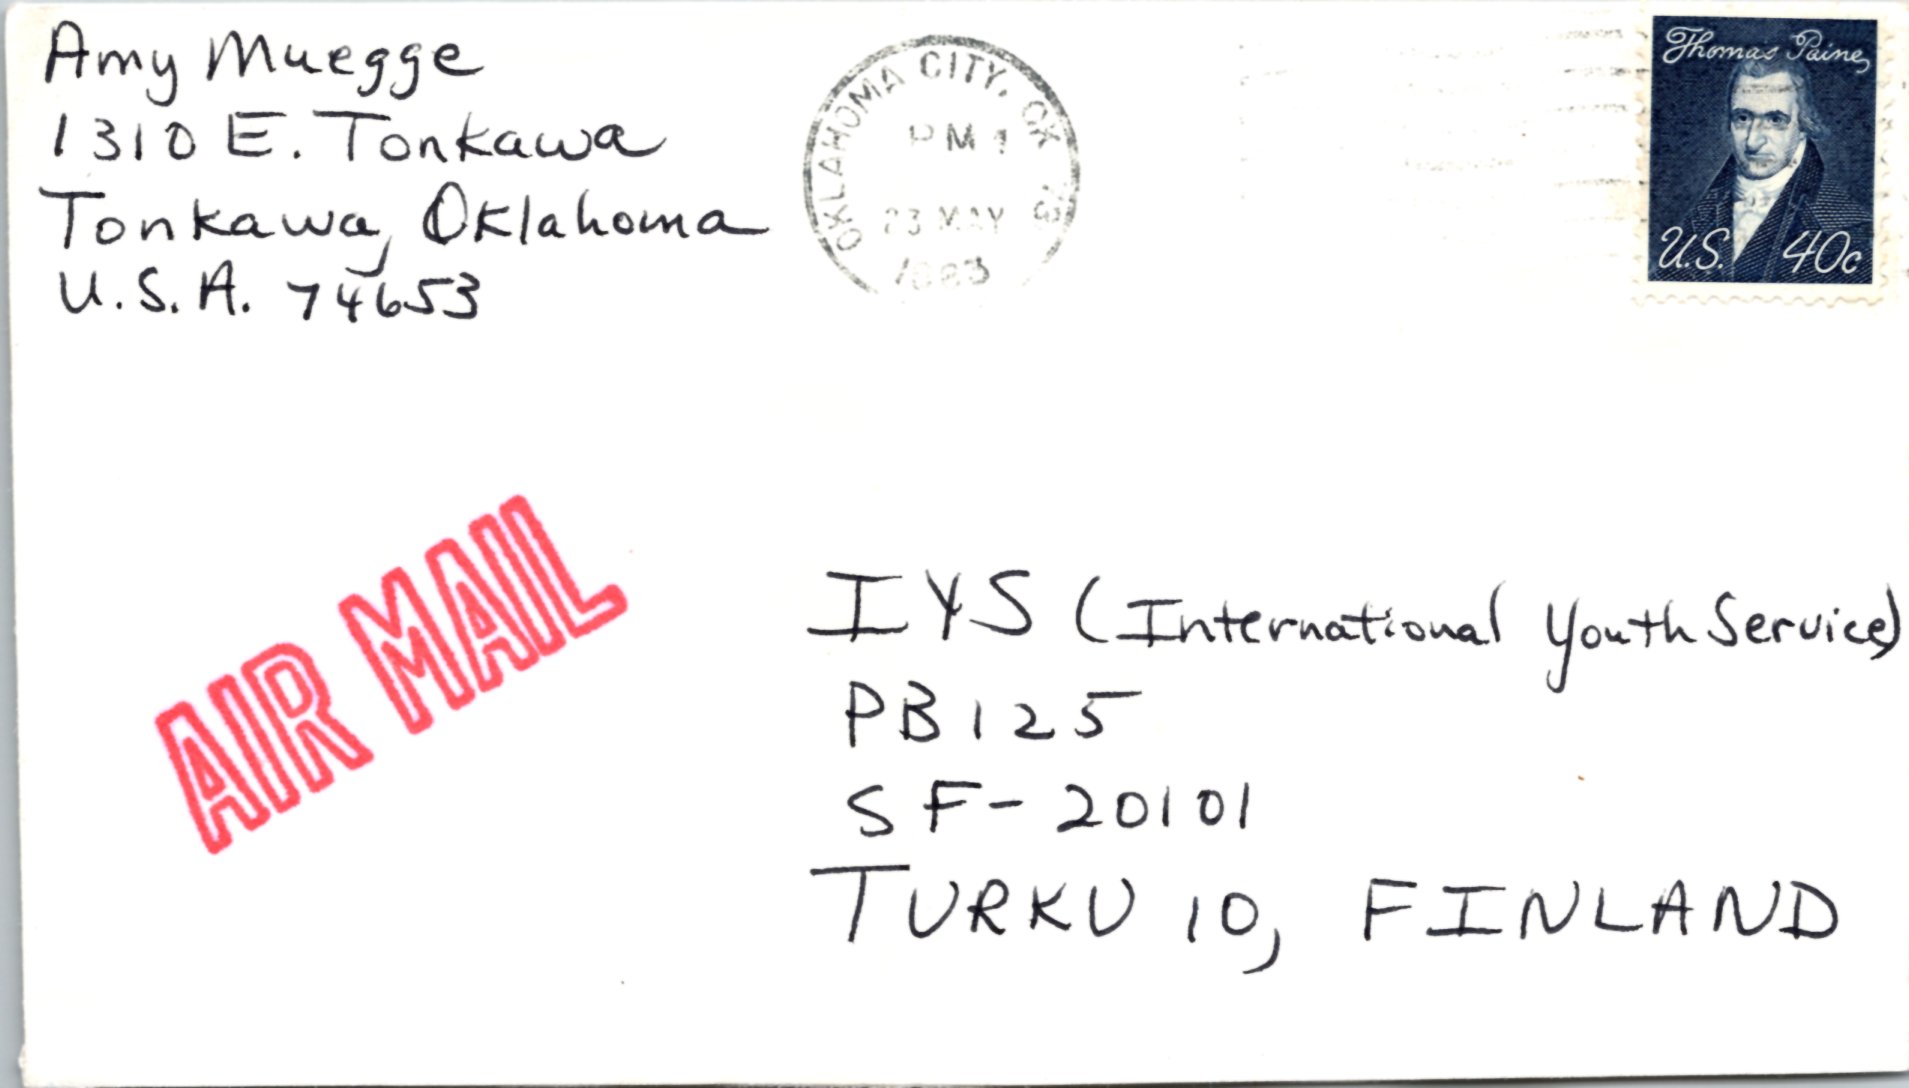 Amy Muegge
1310 E. Tonkawa
Tonkawa, Oklahoma
U.S.A. 74653
OKLAHOMA CITY, OK
PM 1
23 MAY
1983
Thomas Paine
U.S. 40c
AIR MAIL
IYS (International Youth Service)
PB 125
SF-20101
TURKU 10, FINLAND